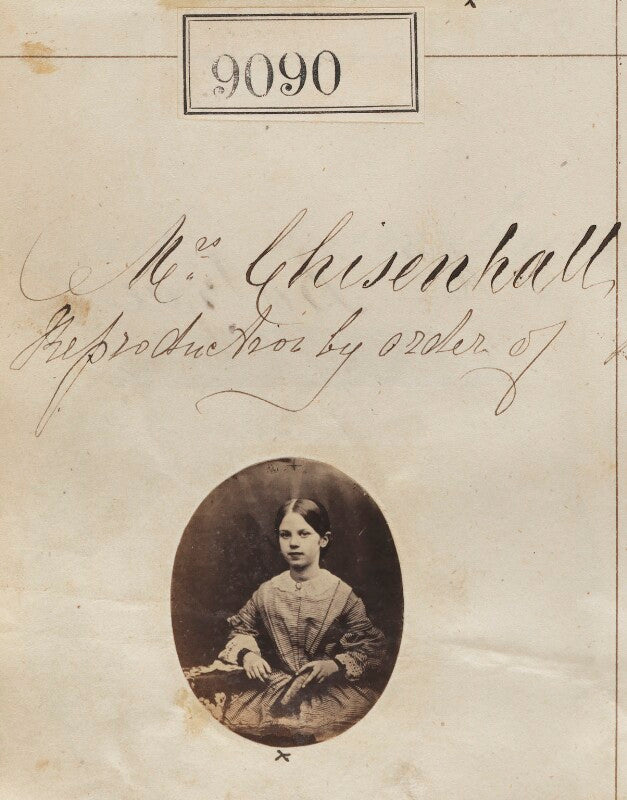 9090
Mrs. Chisenhall
Reproduction by order of